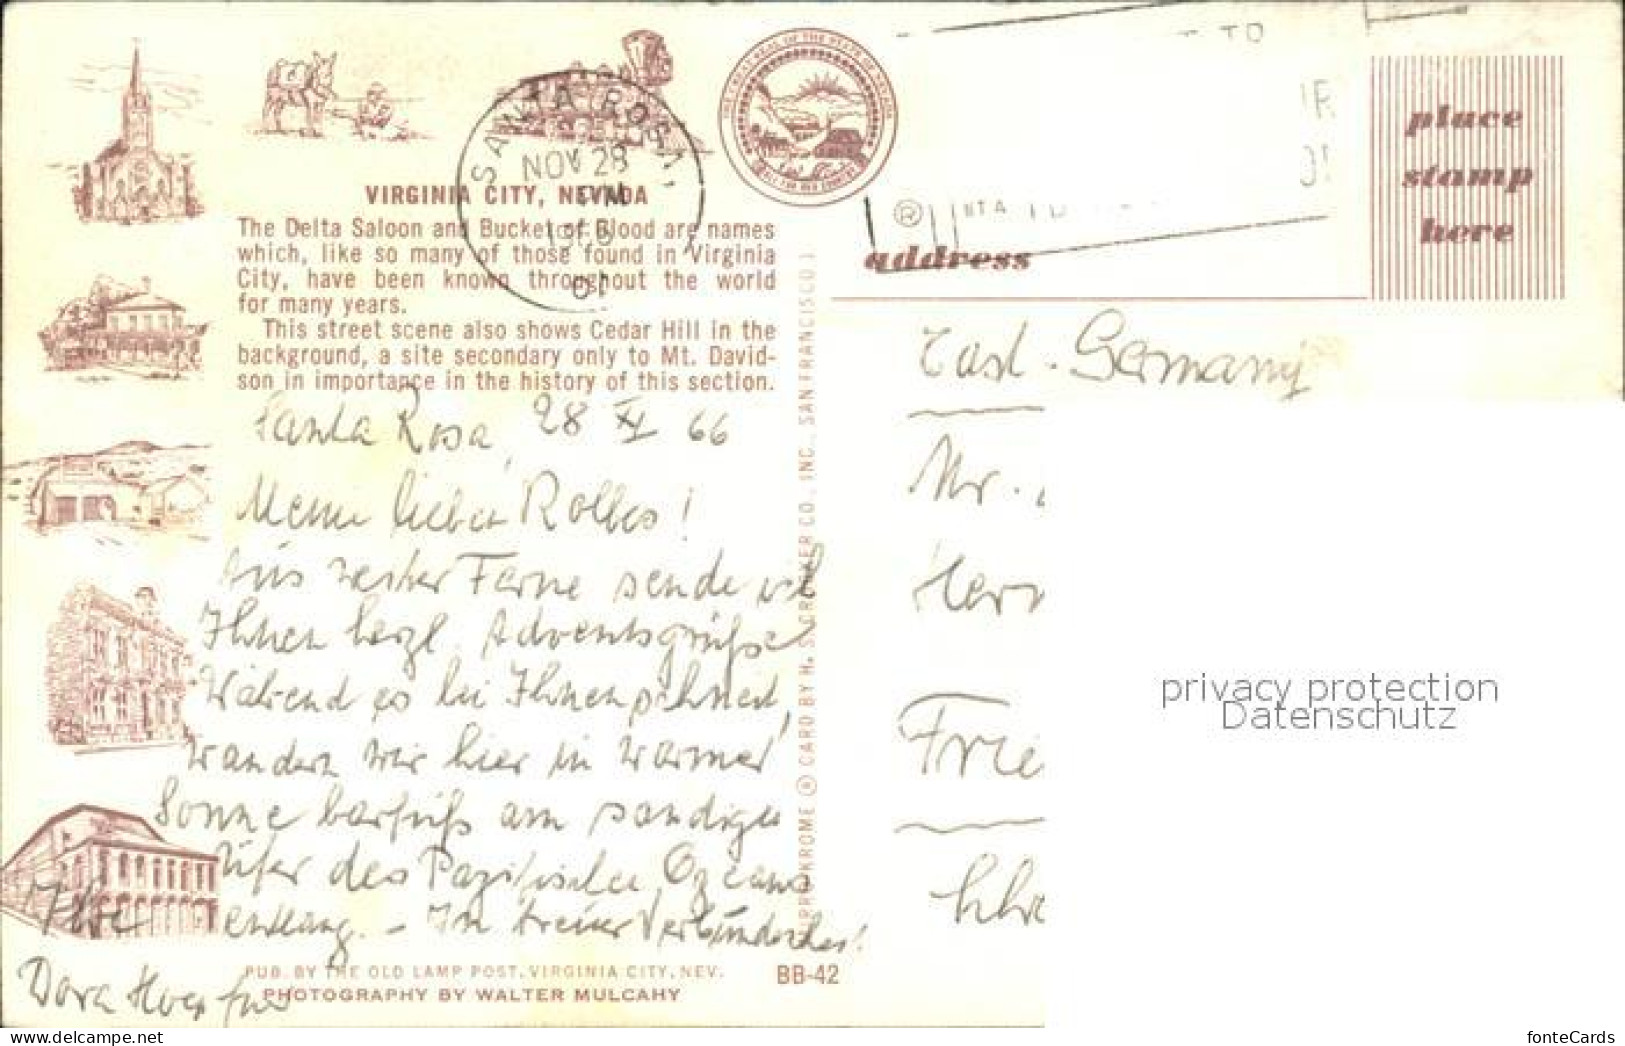 SANTA ROSA,
NOV 28
PM
VIRGINIA CITY, NEVADA
The Delta Saloon and Bucket of Blood are names
which, like so many of those found in Virginia
City, have been known throughout the world
for many years.
This street scene also shows Cedar Hill in the
background, a site secondary only to Mt. David-
son in importance in the history of this section.
Santa Rosa, 28 XI 66
Meine lieben !
Aus weiter Ferne sende ich
Ihnen herzl. Adventsgrüße
Während es bei Ihnen schneit,
wandern wir hier in warmer
Sonne barfuß am sandigen
Ufer des Pazifischen Ozeans
entlang. - In treuer Verbundenheit!
Ihre
Dora
PUB. BY THE OLD LAMP POST, VIRGINIA CITY, NEV.
BB-42
PHOTOGRAPHY BY WALTER MULCAHY
CARD BY H. S. CROCKER CO., INC., SAN FRANCISCO 1
place
stamp
here
address
East-Germany
Mr.
Herr
Frie
privacy protection
Datenschutz
fonteCards
delcampe.net